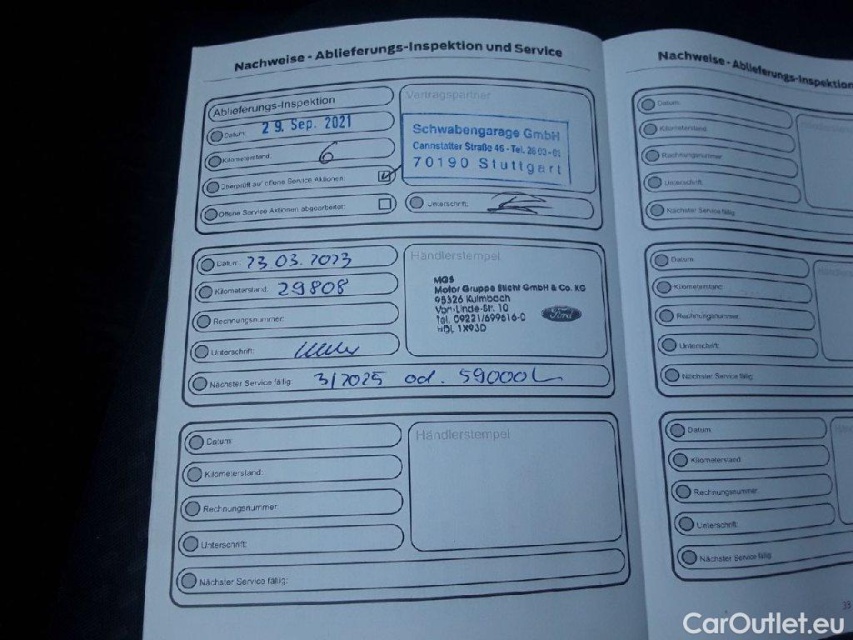 Nachweise - Ablieferungs-Inspektion und Service
Ablieferungs-Inspektion
Datum: 29. Sep. 2021
Kilometerstand: 6
Überprüft auf offene Service Aktionen:
Offene Service Aktionen abgearbeitet:
Vertragspartner
Schwabengarage GmbH
Cannstatter Straße 46 - Tel. 28 03 - 01
70190 Stuttgart
Unterschrift:
Datum: 23.03.2023
Kilometerstand: 29808
Rechnungsnummer:
Unterschrift:
Händlerstempel
MGS
Motor Gruppe Sticht GmbH & Co. KG
95326 Kulmbach
Von-Linde-Str. 10
Tel. 09221/699616-0
HDL 1X93D
Ford
Nächster Service fällig: 3/2025 od. 59000
Datum:
Kilometerstand:
Rechnungsnummer
Unterschrift:
Händlerstempel
Nächster Service fällig:
Nachweise - Ablieferungs-Inspektion
Datum:
Kilometerstand
Rechnungsnummer
Unterschrift:
Nächster Service fällig
Datum:
Kilometerstand:
Rechnungsnummer
Unterschrift:
Nächster Service fällig
Datum:
Kilometerstand
Rechnungsnummer
Unterschrift:
Nächster Service fällig:
CarOutlet.eu